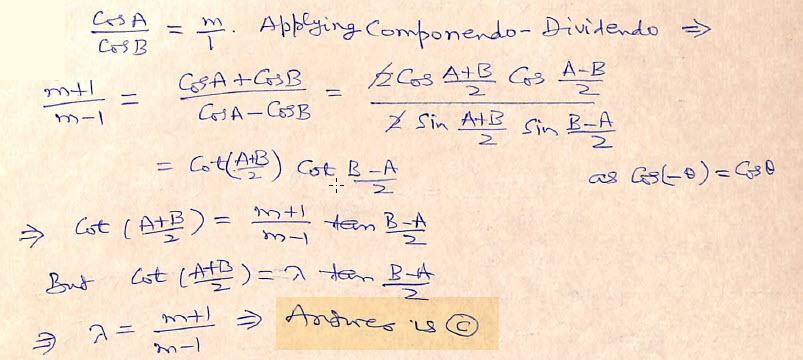 CosA/CosB = m/1. Applying Componendo-Dividendo ⇒
(m+1)/(m-1) = (CosA+CosB)/(CosA-CosB) = (2 Cos (A+B)/2 Cos (A-B)/2)/(2 Sin (A+B)/2 Sin (B-A)/2)
= Cot((A+B)/2) Cot (B-A)/2 as Cos(-θ)=Cosθ
⇒ Cot ((A+B)/2) = (m+1)/(m-1) tan (B-A)/2
But Cot ((A+B)/2) = λ tan (B-A)/2
⇒ λ = (m+1)/(m-1) ⇒ Answer is Ⓒ